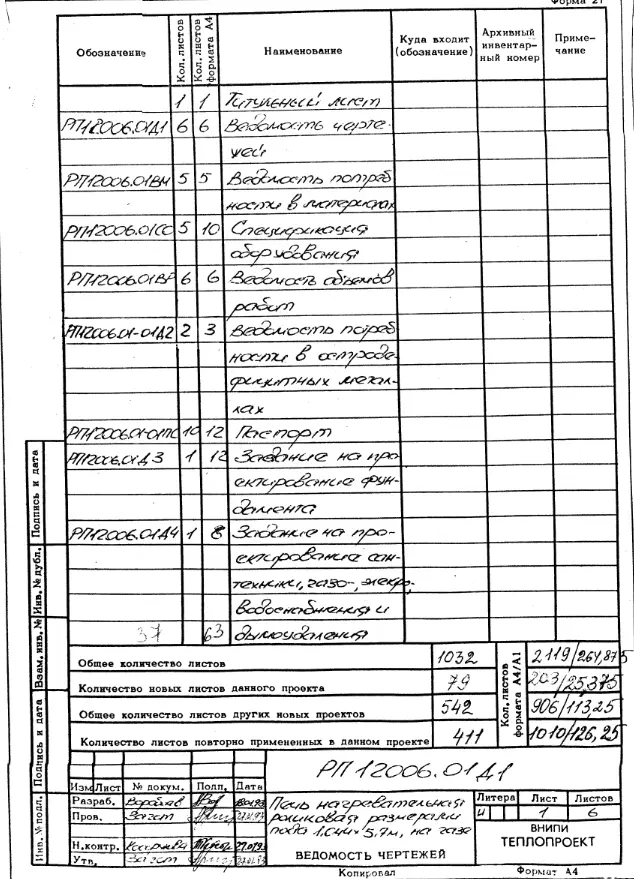 Форма 21
Обозначение Кол. листов Кол. листов формата А4 Наименование Куда входит (обозначение) Архивный инвентарный номер Примечание
1 1 Титульный лист
РП12006.01Д1 6 6 Ведомость черте-
жей
РП12006.01ВМ 5 5 Ведомость потреб
ности в материалах
РП12006.01СО 5 10 Спецификация
оборудования
РП12006.01ВР 6 6 Ведомость объемов
работ
РП12006.01-01Д2 2 3 Ведомость потреб
ности в остроде-
фицитных метал-
лах
РП12006.01-01ПС 10 12 Паспорт
РП12006.01Д3 1 12 Задание на про
ектирование фун-
дамента
РП12006.01Д4 1 8 Задание на про-
ектирование сан-
техники, газо-, электро,
водоснабжения и
37 63 дымоудаления
Общее количество листов 1032 2119/264,875
Количество новых листов данного проекта 79 203/25,375
Общее количество листов других новых проектов 542 906/113,25
Количество листов повторно примененных в данном проекте 411 1010/126,25
Кол. листов формата А4/А1
РП12006.01Д1
Изм Лист № докум. Подп. Дата
Разраб.
Пров.
Н.контр.
Утв.
Печь нагревательная
роликовая размерами
пода 1,044 × 5,7м, на газе
ВЕДОМОСТЬ ЧЕРТЕЖЕЙ
Литера Лист Листов
И 1 6
ВНИПИ
ТЕПЛОПРОЕКТ
Копировал Формат А4
Инв. № подл. Подпись и дата Взам. инв. № Инв. № дубл. Подпись и дата